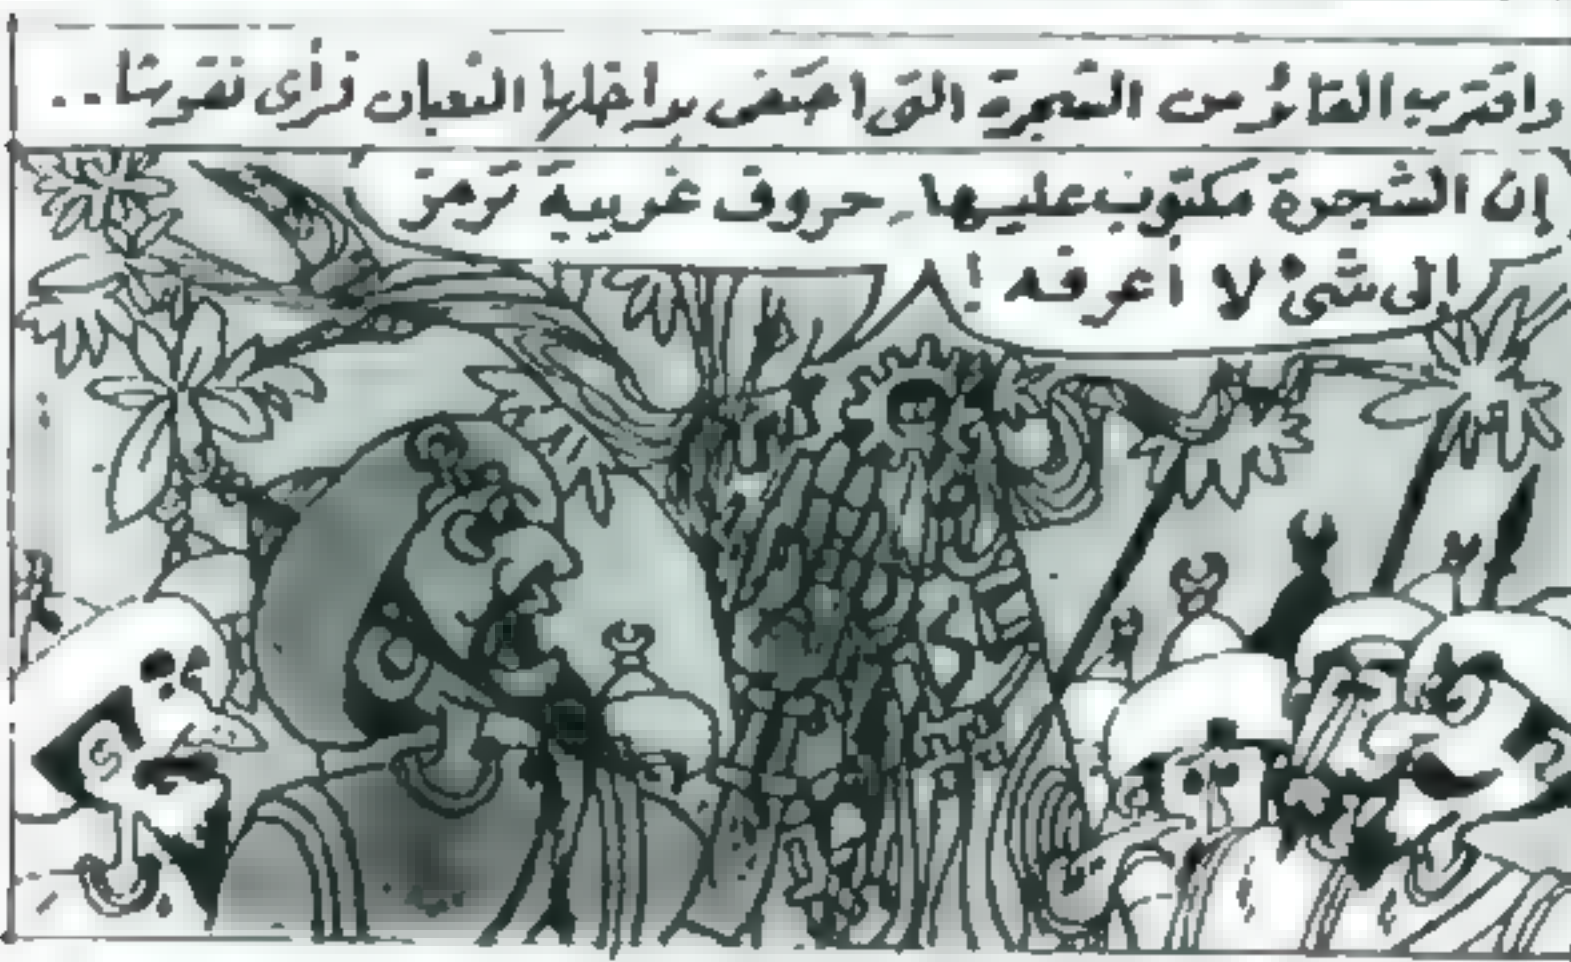 واقترب القائد من الشجرة التى اختفى بداخلها الثعبان فرأى نقوشا..
إن الشجرة مكتوب عليها حروف غريبة ترمز
إلى شئ لا أعرفه !